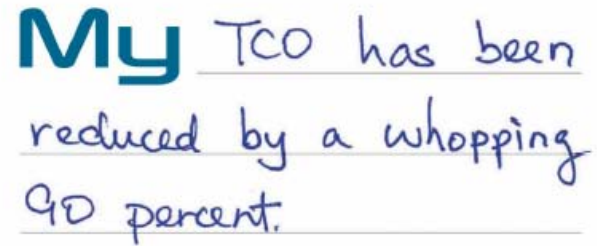 My TCO has been
reduced by a whopping
90 percent.